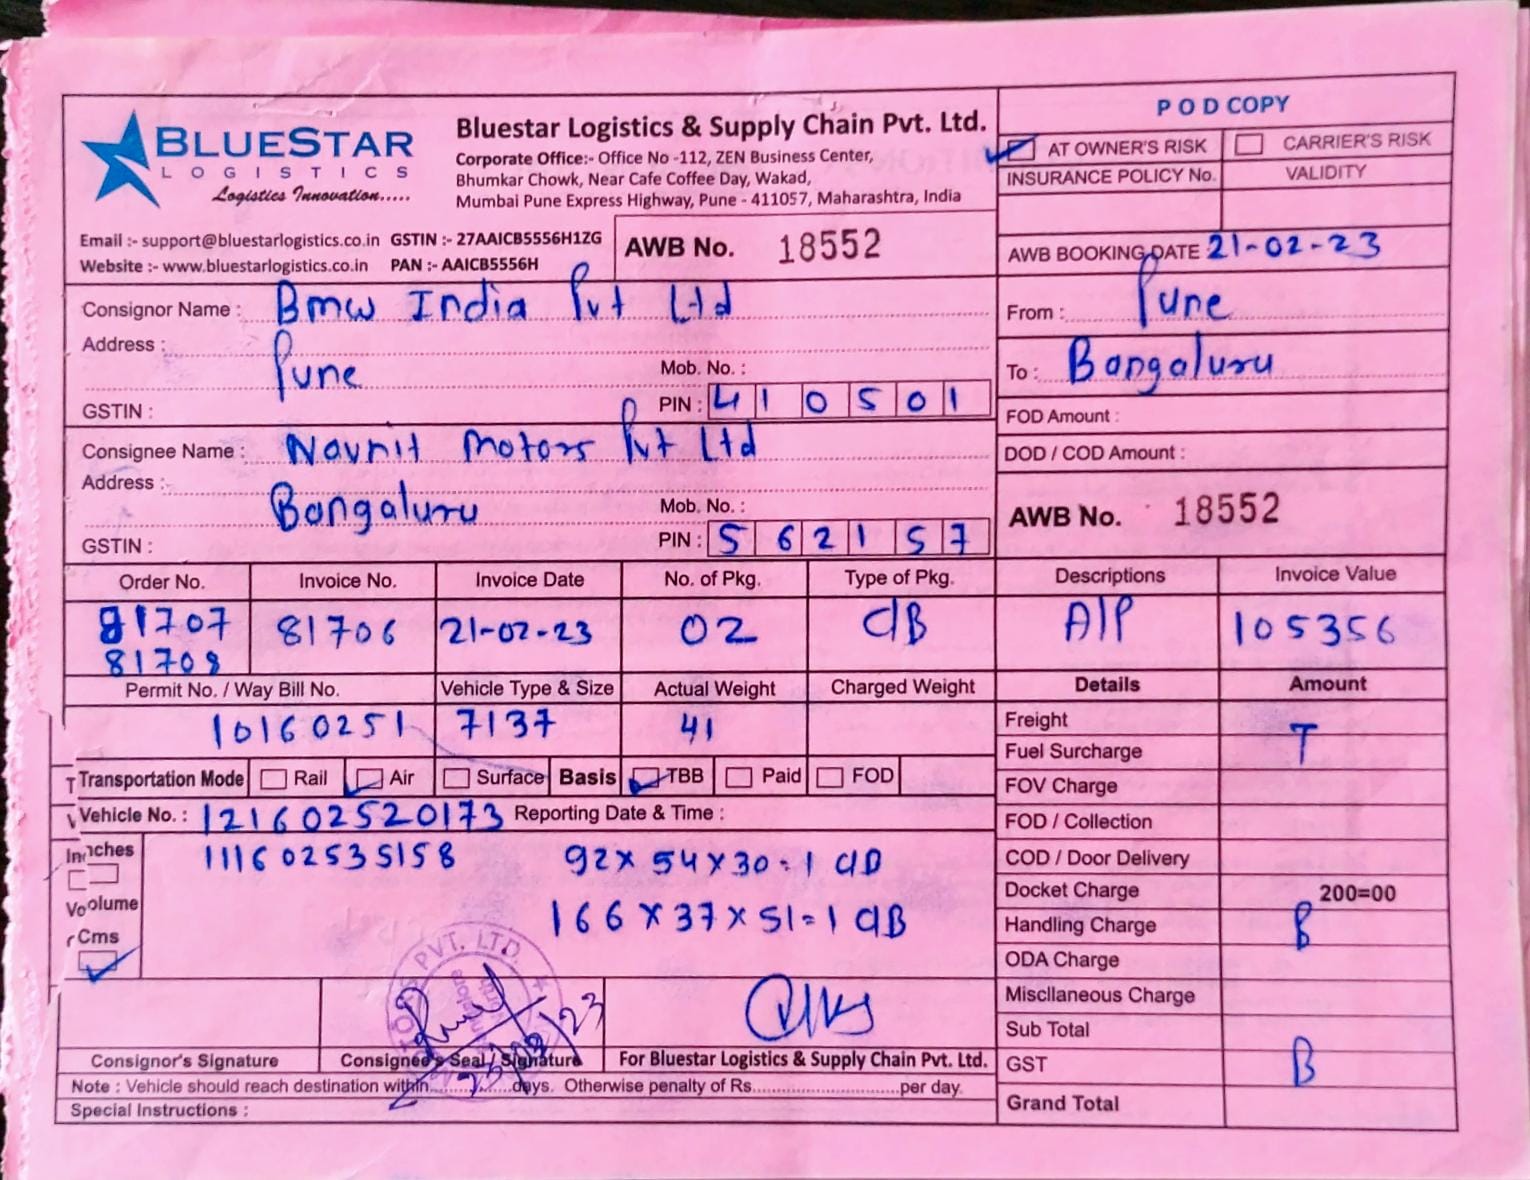 BLUESTAR
LOGISTICS
Logistics Innovation.....
Bluestar Logistics & Supply Chain Pvt. Ltd.
Corporate Office:- Office No -112, ZEN Business Center,
Bhumkar Chowk, Near Cafe Coffee Day, Wakad,
Mumbai Pune Express Highway, Pune - 411057, Maharashtra, India
Email :- support@bluestarlogistics.co.in GSTIN :- 27AAICB5556H1ZG
Website :- www.bluestarlogistics.co.in PAN :- AAICB5556H
AWB No. 18552
POD COPY
AT OWNER'S RISK CARRIER'S RISK
INSURANCE POLICY No. VALIDITY
AWB BOOKING DATE 21-02-23
Consignor Name : Bmw India Pvt Ltd
Address :
Pune
Mob. No. :
GSTIN : PIN : 410501
From : Pune
To : Bangaluru
FOD Amount :
DOD / COD Amount :
Consignee Name : Navnit Motors Pvt Ltd
Address :
Bangaluru
Mob. No. :
GSTIN : PIN : 562157
AWB No. 18552
Order No. Invoice No. Invoice Date No. of Pkg. Type of Pkg. Descriptions Invoice Value
81707 81706 21-02-23 02 CB A/P 105356
81708
Permit No. / Way Bill No. Vehicle Type & Size Actual Weight Charged Weight Details Amount
10160251 7137 41
Transportation Mode Rail Air Surface Basis TBB Paid FOD
Vehicle No. : 121602520173 Reporting Date & Time :
111602535158 92 x 54 x 30 = 1 CB
166 x 37 x 51 = 1 CB
Inches
Volume
Cms
Freight
T
Fuel Surcharge
FOV Charge
FOD / Collection
COD / Door Delivery
Docket Charge 200=00
Handling Charge B
ODA Charge
Miscllaneous Charge
Sub Total
GST B
Grand Total
PVT. LTD.
Consignor's Signature Consignee's Seal / Signature For Bluestar Logistics & Supply Chain Pvt. Ltd.
Note : Vehicle should reach destination within..............days. Otherwise penalty of Rs..........................per day.
Special Instructions :